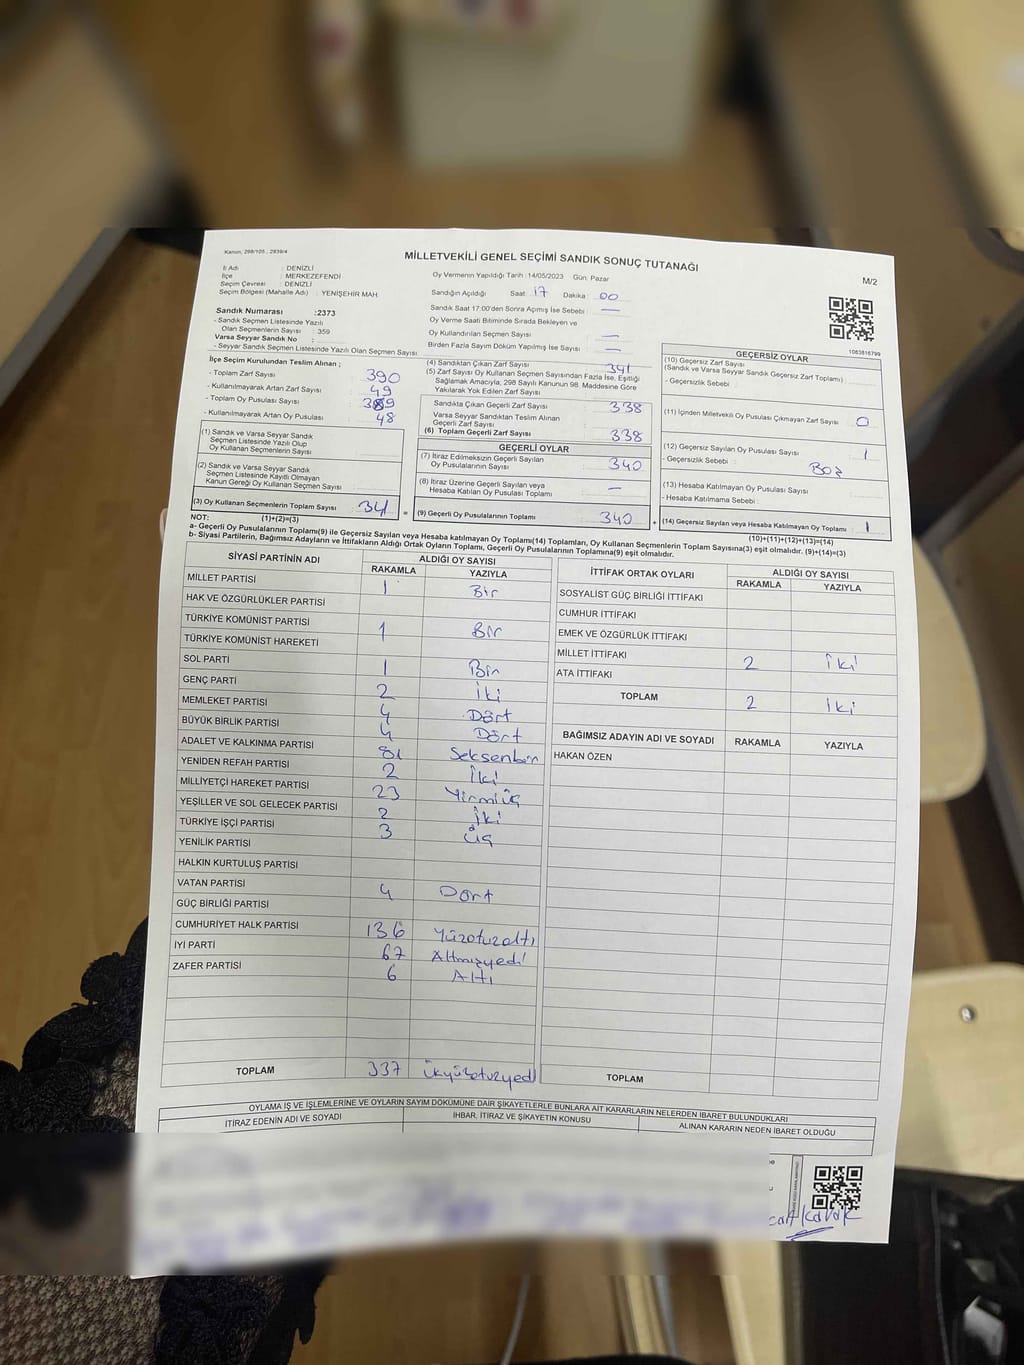 Kanun, 298/105., 2839/4
MİLLETVEKİLİ GENEL SEÇİMİ SANDIK SONUÇ TUTANAĞI
M/2
İl Adı : DENİZLİ
İlçe : MERKEZEFENDİ
Seçim Çevresi : DENİZLİ
Seçim Bölgesi (Mahalle Adı) : YENİŞEHİR MAH
Sandık Numarası :2373
- Sandık Seçmen Listesinde Yazılı
Olan Seçmenlerin Sayısı : 359
Varsa Seyyar Sandık No :
- Seyyar Sandık Seçmen Listesinde Yazılı Olan Seçmen Sayısı :
Oy Vermenin Yapıldığı Tarih :14/05/2023 Gün: Pazar
Sandığın Açıldığı Saat 17 Dakika : 00
Sandık Saat 17:00'den Sonra Açmış İse Sebebi : —
Oy Verme Saati Bitiminde Sırada Bekleyen ve
Oy Kullandırılan Seçmen Sayısı : —
Birden Fazla Sayım Döküm Yapılmış İse Sayısı : —
1083816799
İlçe Seçim Kurulundan Teslim Alınan ;
- Toplam Zarf Sayısı : 390
- Kullanılmayarak Artan Zarf Sayısı : 49
- Toplam Oy Pusulası : 389
- Kullanılmayarak Artan Oy Pusulası : 48
(1) Sandık ve Varsa Seyyar Sandık
Seçmen Listesinde Yazılı Olup
Oy Kullanan Seçmenlerin Sayısı
(2) Sandık ve Varsa Seyyar Sandık
Seçmen Listesinde Kayıtlı Olmayan
Kanun Gereği Oy Kullanan Seçmen Sayısı
(3) Oy Kullanan Seçmenlerin Toplam Sayısı 341
(1)+(2)=(3)
(4) Sandıktan Çıkan Zarf Sayısı : 341
(5) Zarf Sayısı Oy Kullanan Seçmen Sayısından Fazla İse, Eşitliği
Sağlamak Amacıyla, 298 Sayılı Kanunun 98. Maddesine Göre
Yakılarak Yok Edilen Zarf Sayısı
Sandıkta Çıkan Geçerli Zarf Sayısı : 338
Varsa Seyyar Sandıktan Teslim Alınan
Geçerli Zarf Sayısı
(6) Toplam Geçerli Zarf Sayısı : 338
GEÇERLİ OYLAR
(7) İtiraz Edilmeksizin Geçerli Sayılan
Oy Pusulalarının Sayısı : 340
(8) İtiraz Üzerine Geçerli Sayılan veya
Hesaba Katılan Oy Pusulası Toplamı : —
= (9) Geçerli Oy Pusulalarının Toplamı 340
GEÇERSİZ OYLAR
(10) Geçersiz Zarf Sayısı
(Sandık ve Varsa Seyyar Sandık Geçersiz Zarf Toplamı)
- Geçersizlik Sebebi :
(11) İçinden Milletvekili Oy Pusulası Çıkmayan Zarf Sayısı 0
(12) Geçersiz Sayılan Oy Pusulası Sayısı 1
- Geçersizlik Sebebi : Boş
(13) Hesaba Katılmayan Oy Pusulası Sayısı
- Hesaba Katılmama Sebebi :
+ (14) Geçersiz Sayılan veya Hesaba Katılmayan Oy Toplamı : 1
(10)+(11)+(12)+(13)=(14)
NOT:
a- Geçerli Oy Pusulalarının Toplamı(9) ile Geçersiz Sayılan veya Hesaba katılmayan Oy Toplamı(14) Toplamları, Oy Kullanan Seçmenlerin Toplam Sayısına(3) eşit olmalıdır. (9)+(14)=(3)
b- Siyasi Partilerin, Bağımsız Adayların ve İttifakların Aldığı Ortak Oyların Toplamı, Geçerli Oy Pusulalarının Toplamına(9) eşit olmalıdır.
SİYASİ PARTİNİN ADI ALDIĞI OY SAYISI
RAKAMLA YAZIYLA
MİLLET PARTİSİ 1 Bir
HAK VE ÖZGÜRLÜKLER PARTİSİ
TÜRKİYE KOMÜNİST PARTİSİ 1 Bir
TÜRKİYE KOMÜNİST HAREKETİ
SOL PARTİ 1 Bir
GENÇ PARTİ 2 İki
MEMLEKET PARTİSİ 4 Dört
BÜYÜK BİRLİK PARTİSİ 4 Dört
ADALET VE KALKINMA PARTİSİ 81 Seksenbir
YENİDEN REFAH PARTİSİ 2 İki
MİLLİYETÇİ HAREKET PARTİSİ 23 Yirmiüç
YEŞİLLER VE SOL GELECEK PARTİSİ 2 İki
TÜRKİYE İŞÇİ PARTİSİ 3 üç
YENİLİK PARTİSİ
HALKIN KURTULUŞ PARTİSİ
VATAN PARTİSİ 4 Dört
GÜÇ BİRLİĞİ PARTİSİ
CUMHURİYET HALK PARTİSİ 136 Yüzotuzaltı
İYİ PARTİ 67 Altmışyedi
ZAFER PARTİSİ 6 Altı
TOPLAM 337
İTTİFAK ORTAK OYLARI ALDIĞI OY SAYISI
RAKAMLA YAZIYLA
SOSYALİST GÜÇ BİRLİĞİ İTTİFAKI
CUMHUR İTTİFAKI
EMEK VE ÖZGÜRLÜK İTTİFAKI
MİLLET İTTİFAKI 2 İki
ATA İTTİFAKI
TOPLAM 2 İki
BAĞIMSIZ ADAYIN ADI VE SOYADI RAKAMLA YAZIYLA
HAKAN ÖZEN
TOPLAM
OYLAMA İŞ VE İŞLEMLERİNE VE OYLARIN SAYIM DÖKÜMÜNE DAİR ŞİKAYETLERLE BUNLARA AİT KARARLARIN NELERDEN İBARET BULUNDUKLARI
İTİRAZ EDENİN ADI VE SOYADI İHBAR, İTİRAZ VE ŞİKAYETİN KONUSU ALINAN KARARIN NEDEN İBARET OLDUĞU